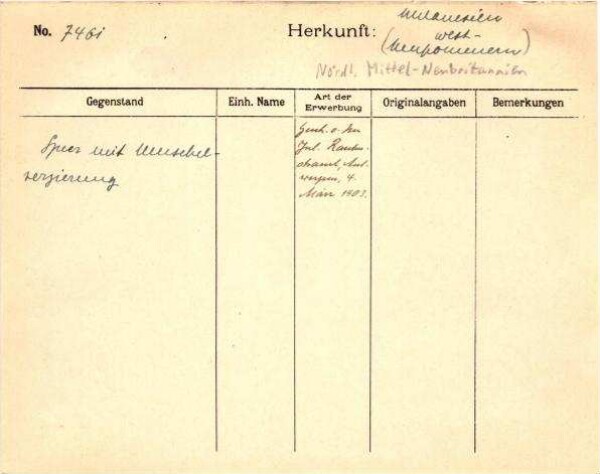 No. 7461
Herkunft:
Melanesien
(West-
Neupommern)
Nördl. Mittel-Neubritannien
Gegenstand
Einh. Name
Art der
Erwerbung
Originalangaben
Bemerkungen
Speer mit Muschel-
verzierung
Gesch. v. Hrn
Jul.
Ant-
werpen, 4.
März 1903.